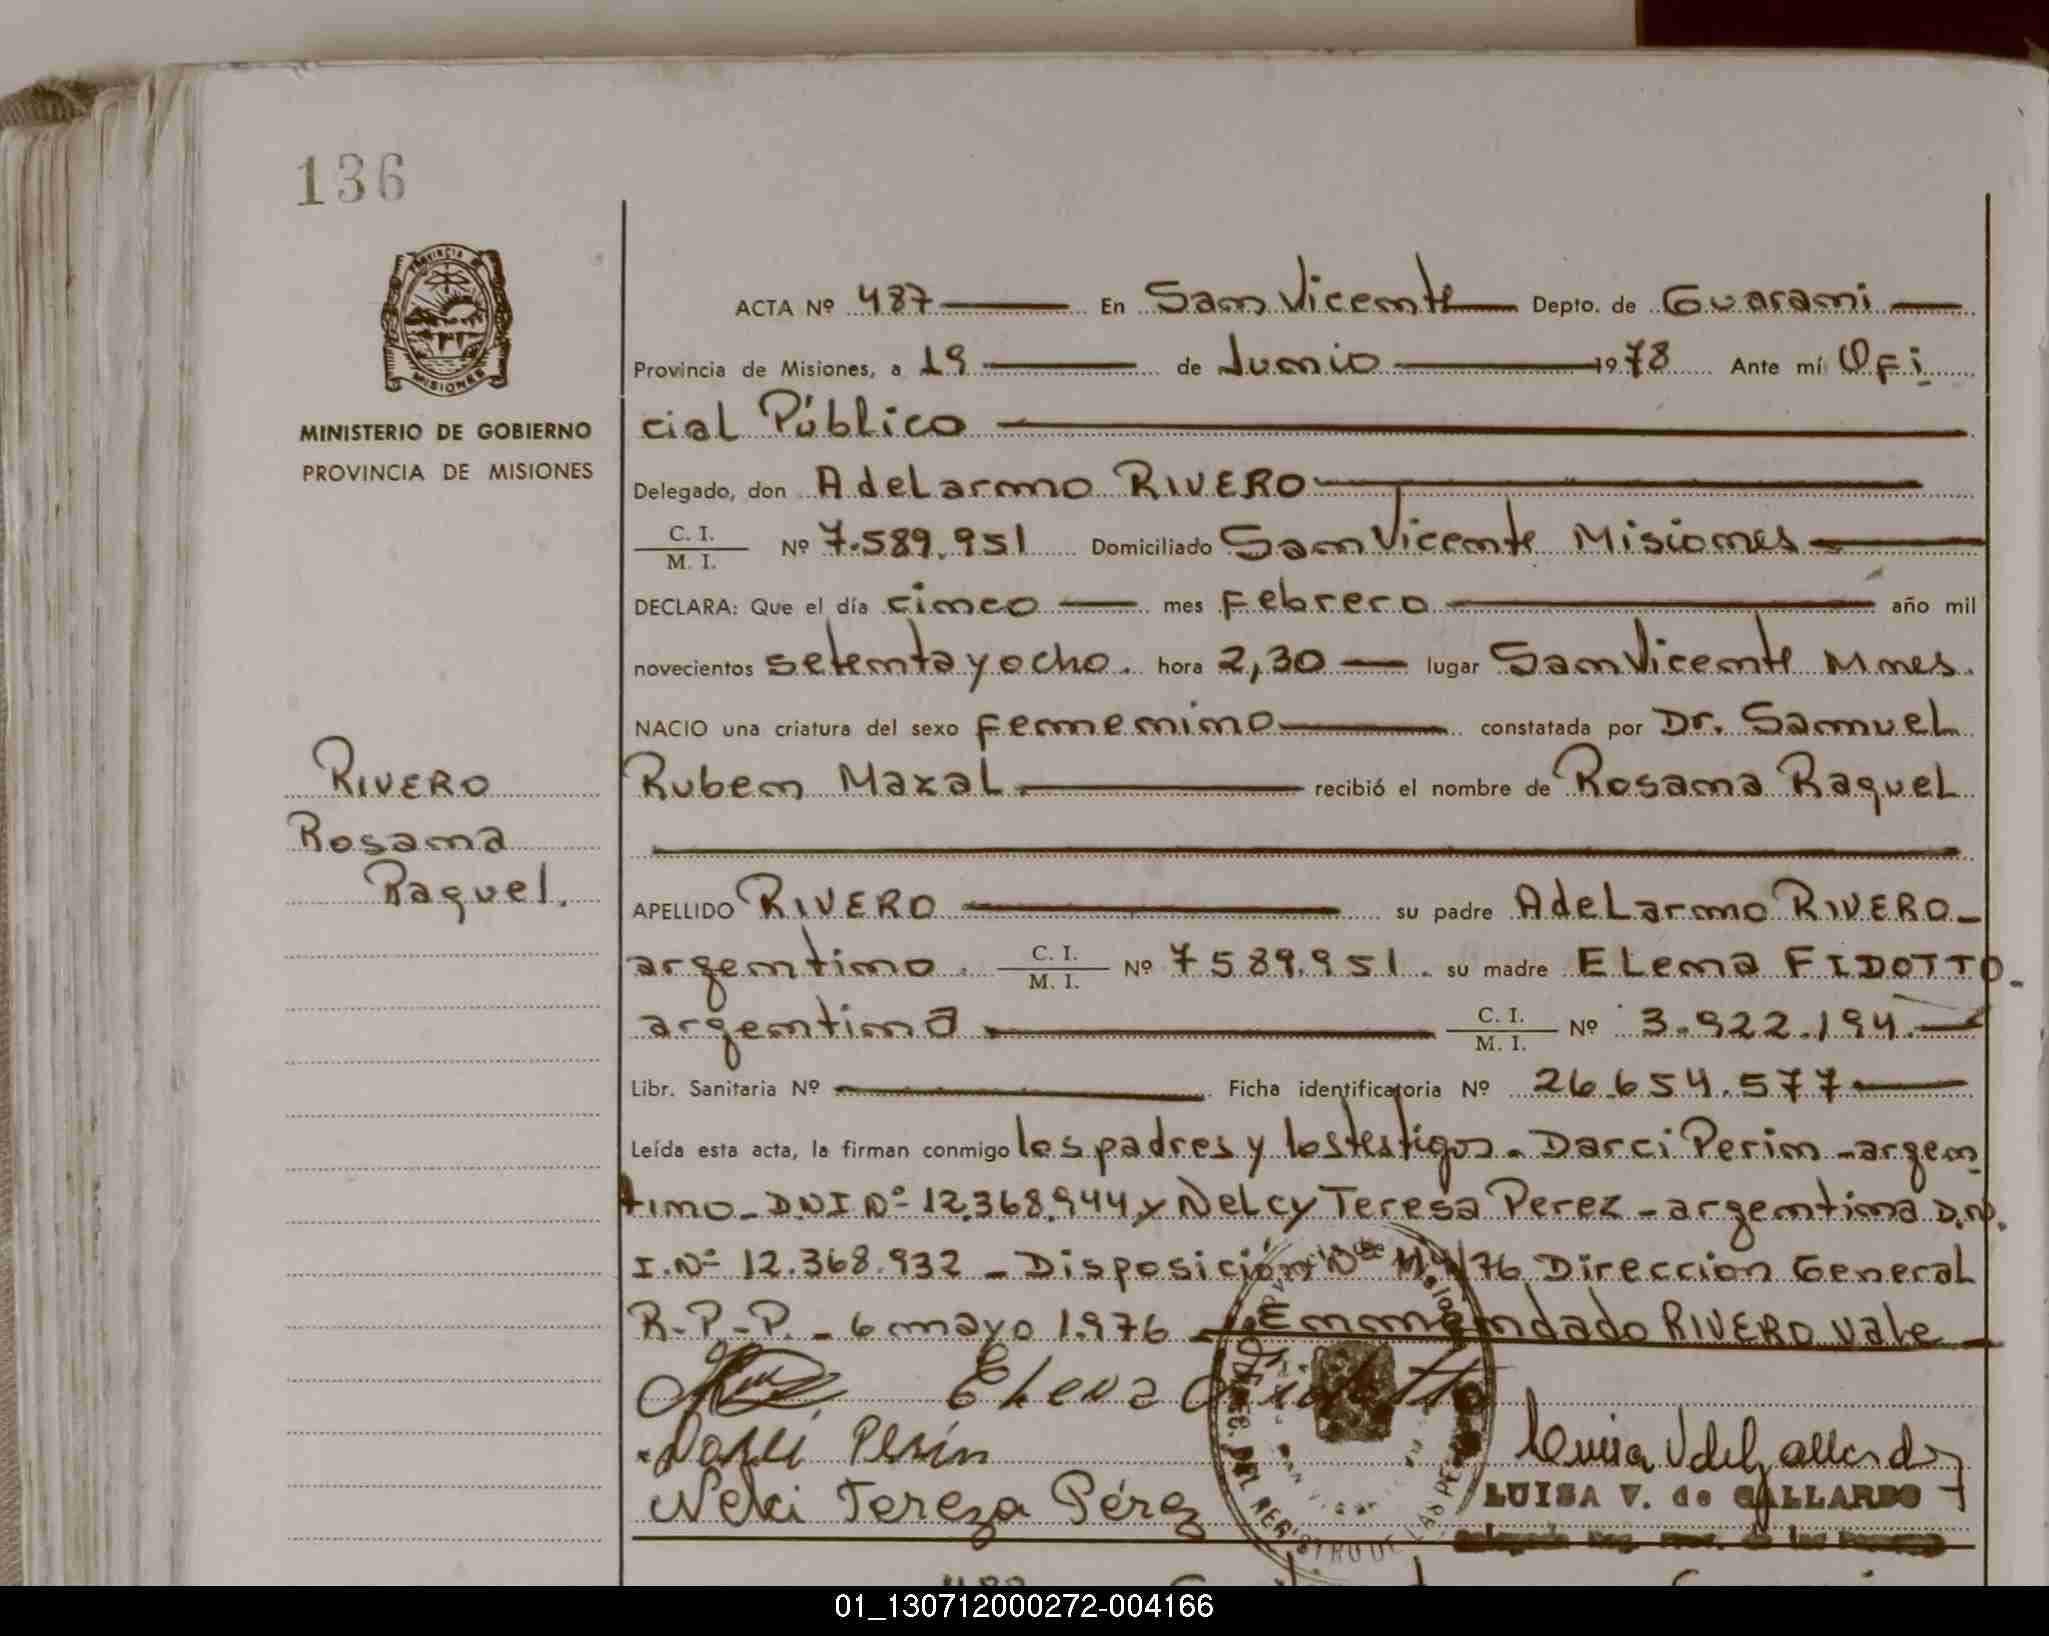 136
PROVINCIA DE
MISIONES
MINISTERIO DE GOBIERNO
PROVINCIA DE MISIONES
RIVERO
Rosana
Raquel.
ACTA Nº 487 En San Vicente Depto. de Guarani
Provincia de Misiones, a 19 de Junio 1978 Ante mí Ofi
cial Público
Delegado, don Adelarmo RIVERO
C. I.
M. I. Nº 7.589.951 Domiciliado San Vicente Misiones
DECLARA: Que el día cinco mes Febrero año mil
novecientos setenta y ocho. hora 2,30 lugar San Vicente Mnes.
NACIO una criatura del sexo femenino constatada por Dr. Samuel
Ruben Maxal recibió el nombre de Rosana Raquel
APELLIDO RIVERO su padre Adelarmo RIVERO-
argentino. C. I.
M. I. Nº 7589.951. su madre Elena FIDOTTO.
argentina C. I.
M. I. Nº 3.922.194.
Libr. Sanitaria Nº Ficha identificatoria Nº 26.654.577
Leída esta acta, la firman conmigo los padres y los testigos. Darci Perin - argen
tino - DNI Nº 12.368.944 y Nelcy Teresa Perez - argentina D.N.
I. Nº 12.368.932 - Disposición Nº /76 Direccion General
R-P-P. - 6 mayo 1.976 - Enmendado RIVERO vale
Elena Fidotto
Darci Perín
Nelci Tereza Pérez
Luisa V de Gallardo
LUISA V. de GALLARDO
DEL REGISTRO DE LAS PE
01_130712000272-004166